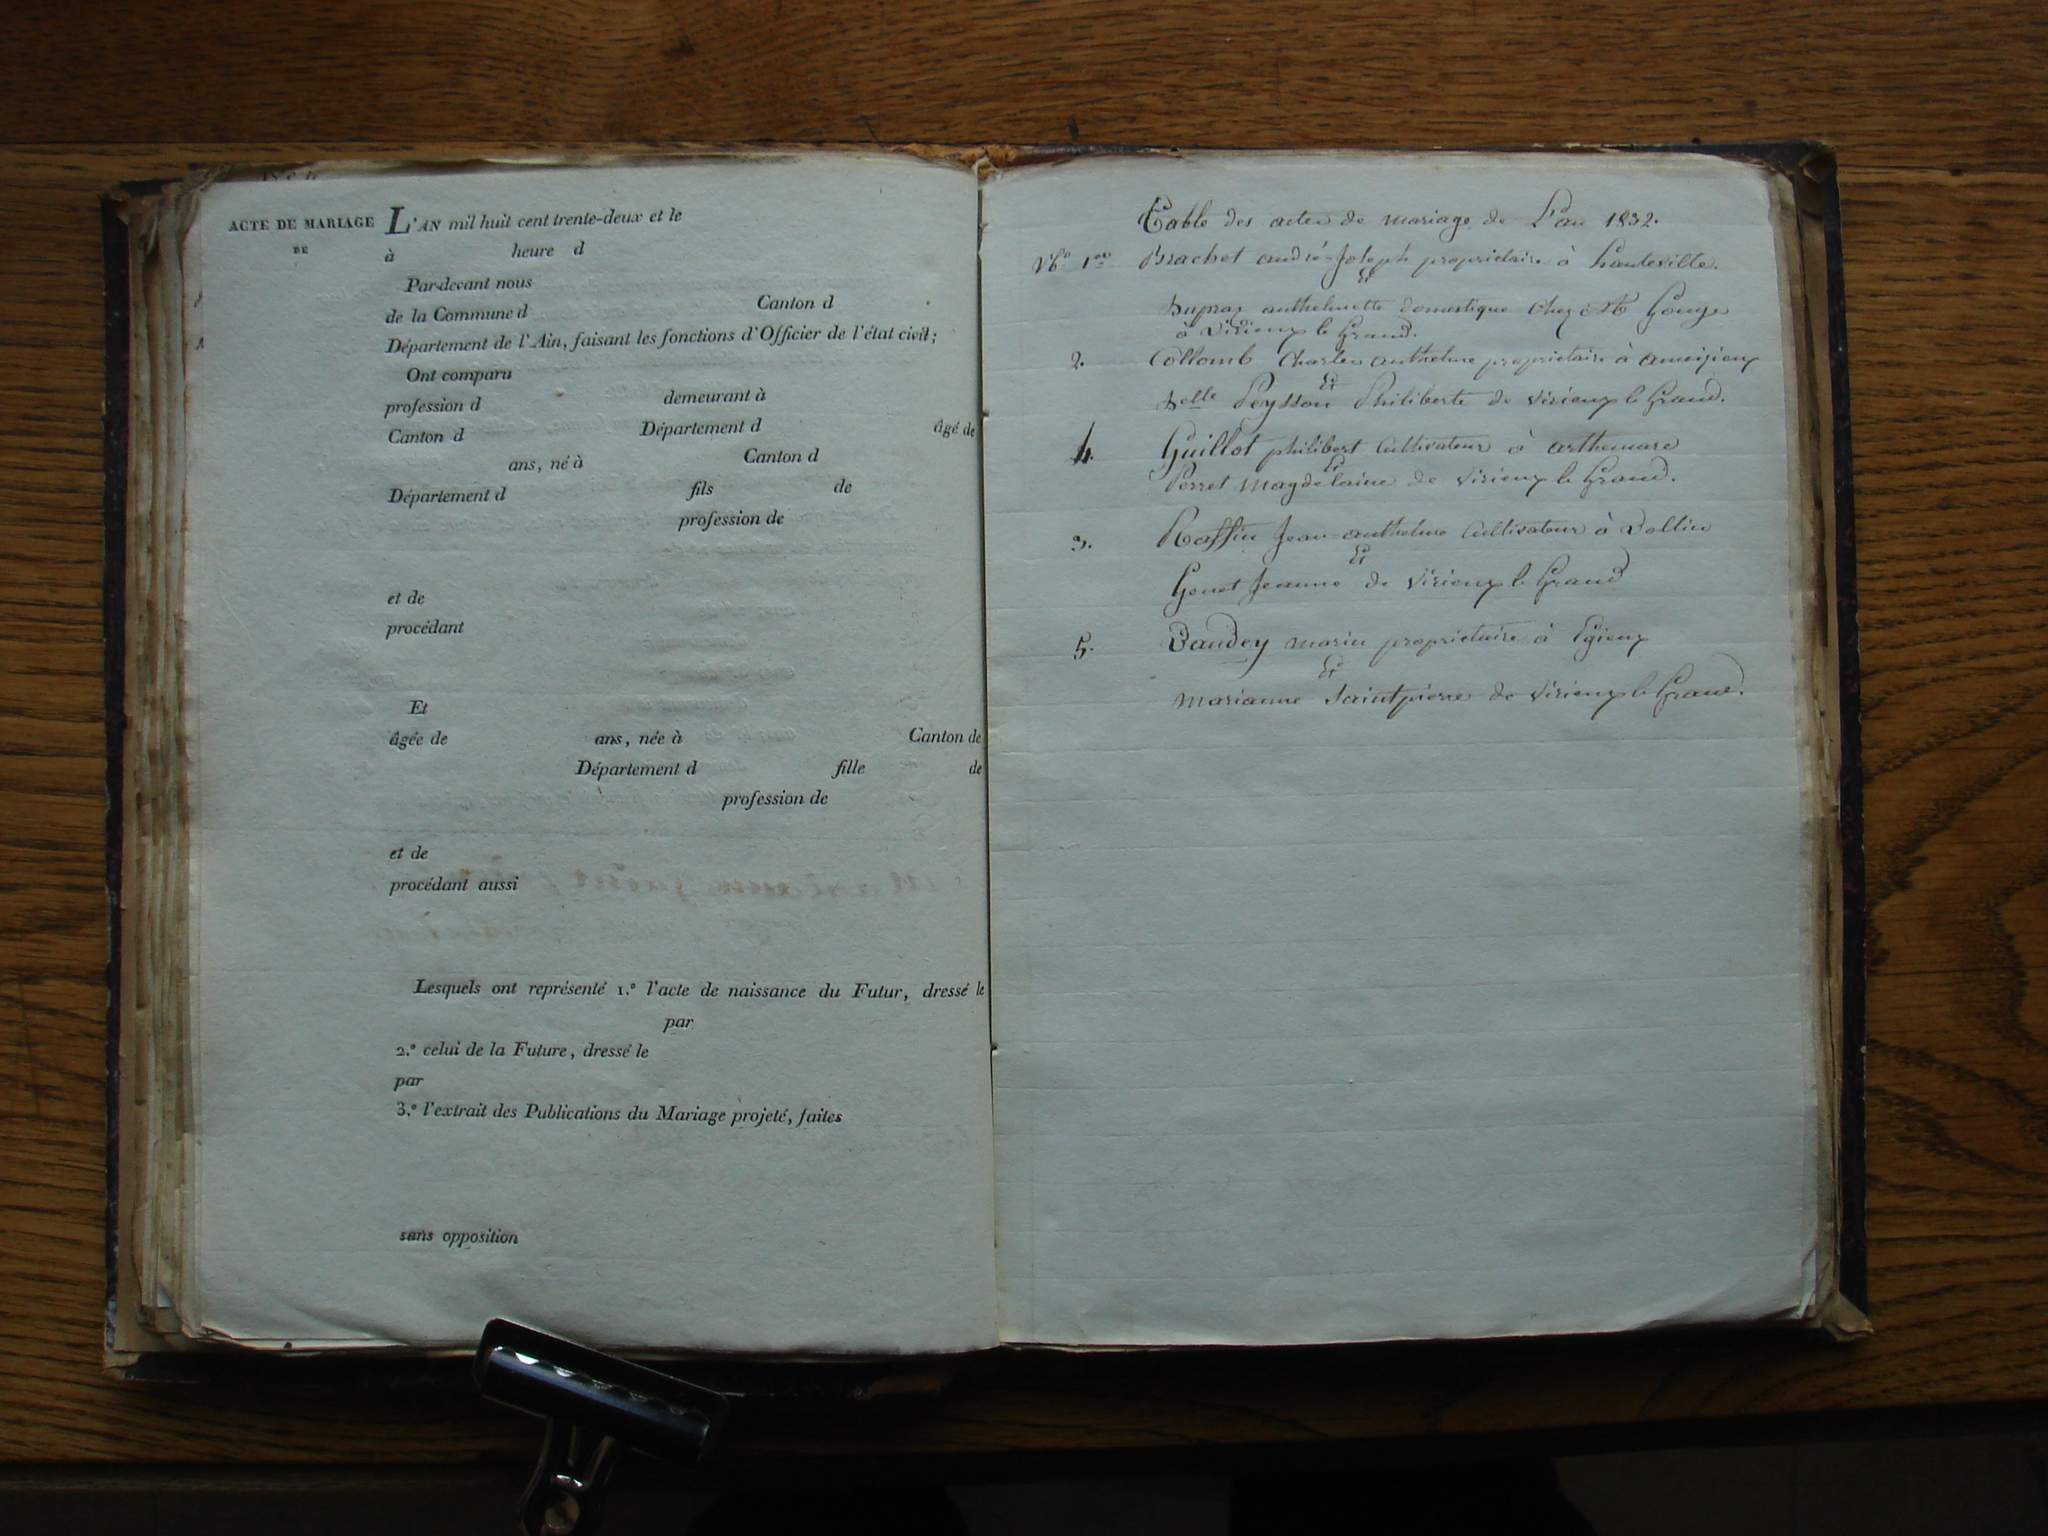 ACTE DE MARIAGE
DE
L'AN mil huit cent trente-deux et le
à heure d
Par-devant nous
de la Commune d Canton d
Département de l'Ain, faisant les fonctions d'Officier de l'état civil;
Ont comparu
profession d demeurant à
Canton d Département d âgé de
ans, né à Canton d
Département d fils de
profession de
et de
procédant
Et
âgée de ans, née à Canton de
Département d fille de
profession de
et de
procédant aussi
Lesquels ont représenté 1.º l'acte de naissance du Futur, dressé le
par
2.º celui de la Future, dressé le
par
3.º l'extrait des Publications du Mariage projeté, faites
sans opposition
Table des actes de mariage de L'an 1832.
Nº 1er Brachet andré-Joseph proprietaire à hauteville.
Et
Dupraz anthelmette domestique chez Mr Gouge
à Virieux le Grand.
2. Collomb Charles anthelme proprietaire à ameizieux
Et
Delle Peysson Philiberte de Virieux le Grand.
4. Guillot philibert Cultivateur à arthemare
Et
Perret magdelaine de Virieux le Grand.
3. Raffin Jean-anthelme Cultivateur à Vollin
Et
Genet Jeanne de Virieux le Grand
5. Baudey marin proprietaire à Egieux
Et
marianne Saintpierre de Virieux le Grand.